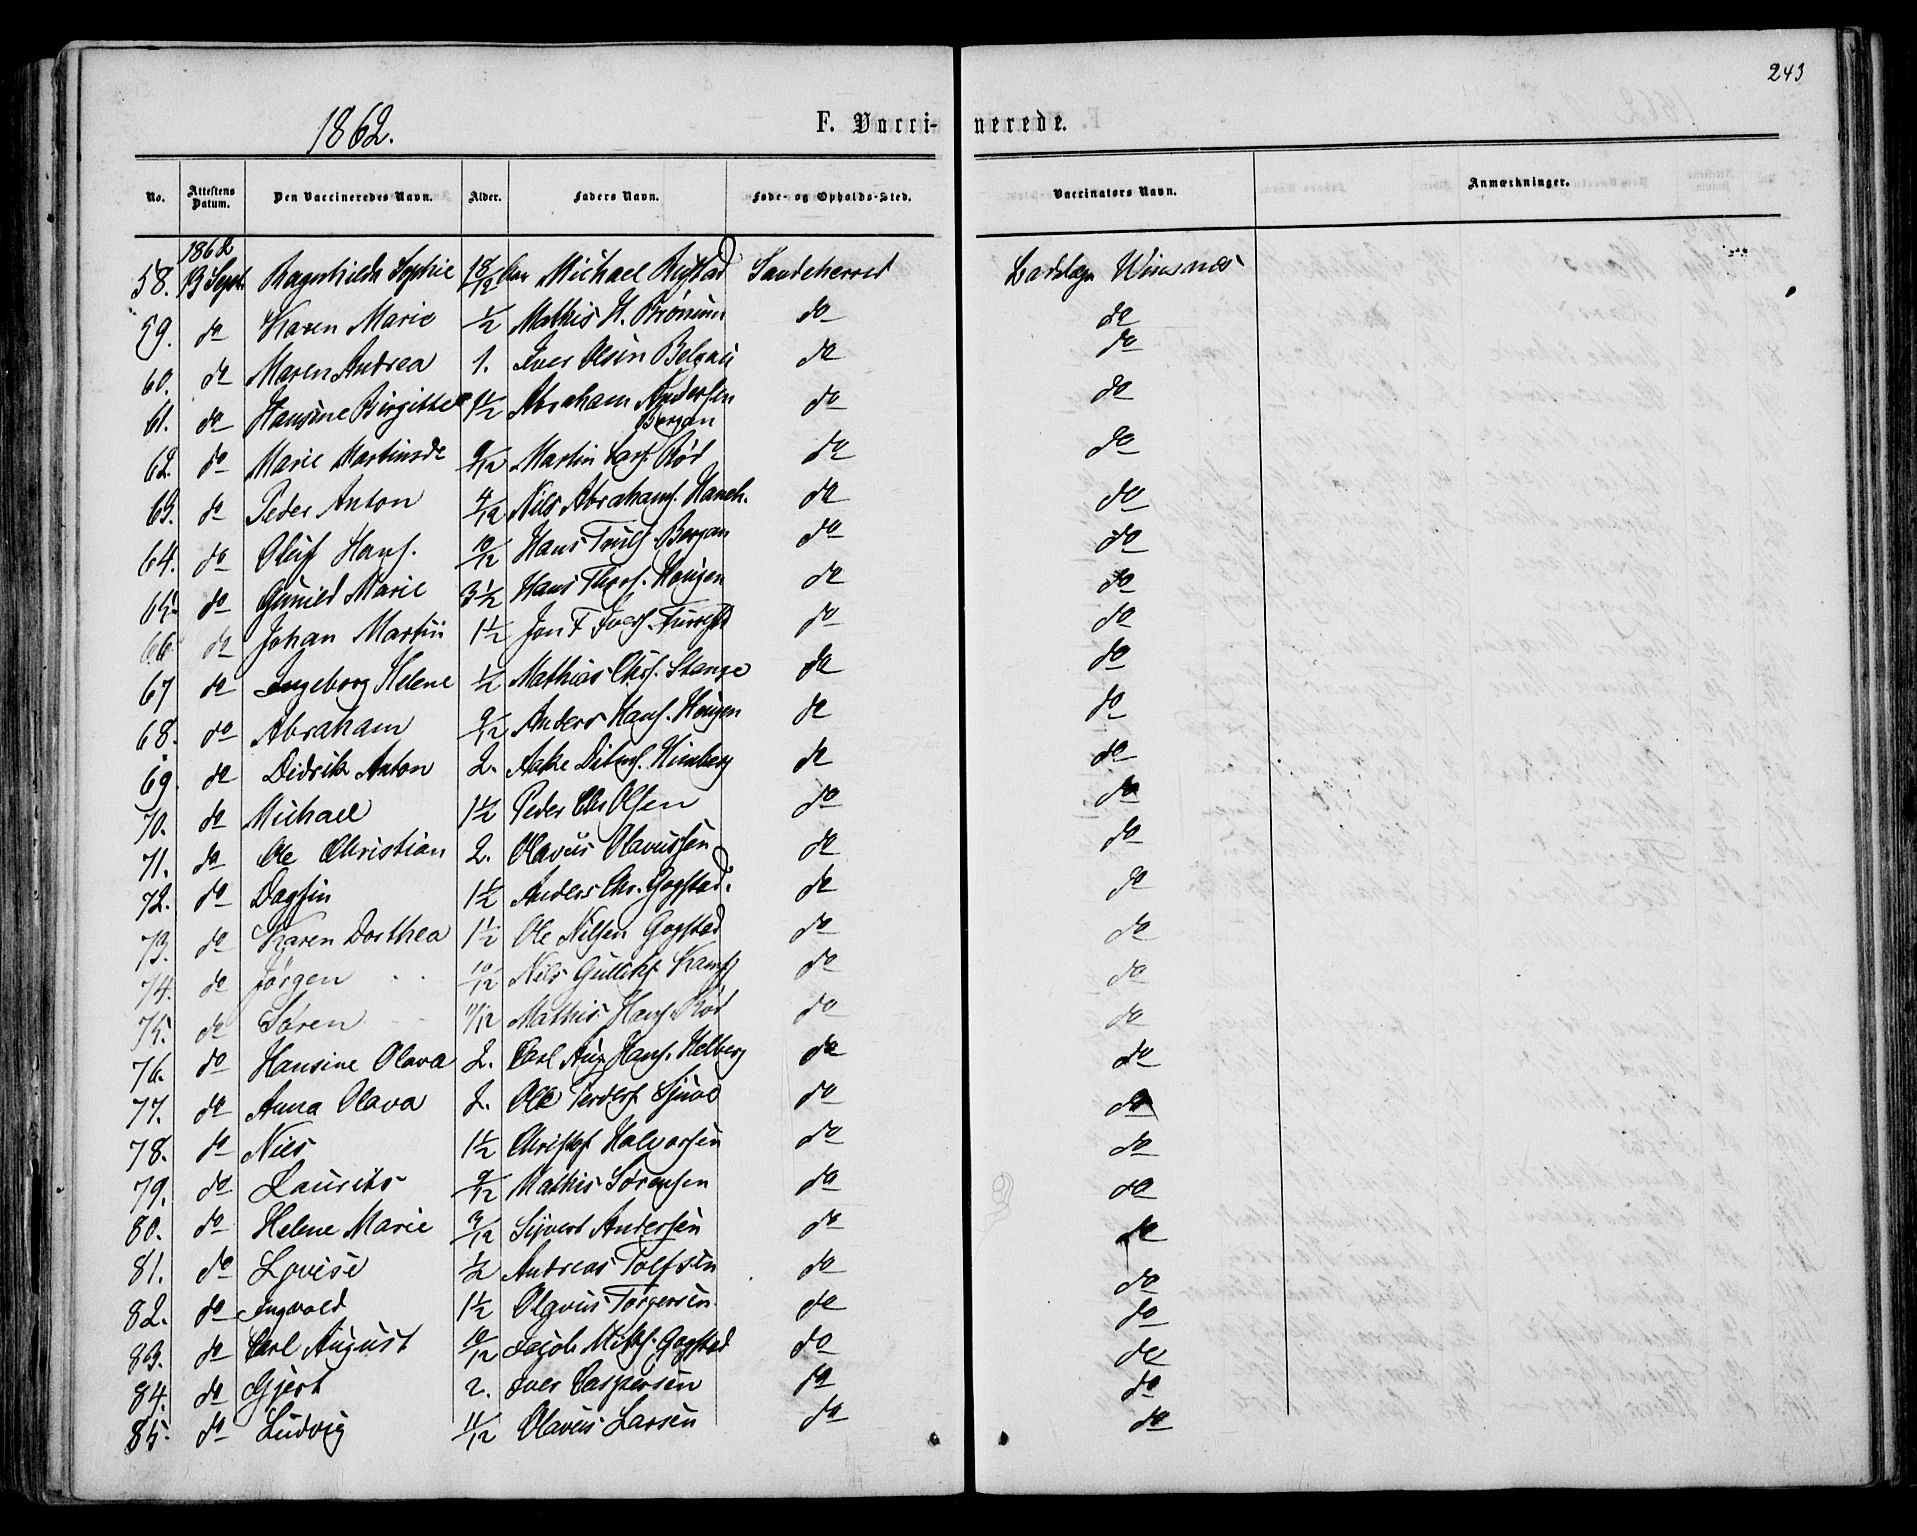 243
1862.
F. Vacci- nerede.
No. Attestens Datum. Den Vaccineredes Navn. Alder. Faders Navn. Føde- og Opholds-Sted. Vaccinators Navn. Anmærkninger.
1862
58. 13 Sept. Ragnhilde Sophie 18/12 Michael Sandeherred
59. do Karen Marie 1/2 Mathis H. do do
60. do Maren Andrea 1. Iver Olsen do do
61. do Hansine Birgitte 1 1/2 Abraham Andersen do do
Bergan
62. do Marie 9/12 Martin Lars. Rød do do
63. do Peder Anton 4/12 Nils Abrahams. do do
64. do Oluf Hans. 10/12 Hans Bergan do do
65. do Gunild Marie 3 1/2 Hans Hougen do do
66. do Johan Martin 1 1/2 do do
67 do Ingeborg Helene 1/2 Mathias Stange do do
68. do Abraham 9/12 Anders Hans. Hougen do do
69. do Didrik Anton 2. Himberg do do
70. do Michael 1 1/2 Peder Chr Olsen do do
71. do Ole Christian 2. Olavus Olavussen do do
72. do Dagfin 1 1/2 Anders Chr. Gogstad. do do
73. do Karen Dorthea 1 1/2 Ole Nilsen Gogstad do do
74. do Jørgen 10/12 Nils do do
75. do Søren 11/12 Mathis Hans. Rød do do
76. do Hansine Olava 2. Carl Aug Hans. do do
77. do Anna Olava 2. Ole do do
78. do Nils 1 1/2 Halvorsen do do
79. do Laurits 9/12 Mathis Sørensen do do
80. do Helene Marie 9/12 Sivert Andersen do do
81. do Lovise 1/2 Andreas Tolfsen do do
82. do Ingvold 1 1/2 Olavus Torgersen do do
83. do Carl August 10/12 Jacob Gogstad do do
84. do Gjert 2. Iver Caspersen do do
85. do Ludvig 11/12 Olavus Larsen do do